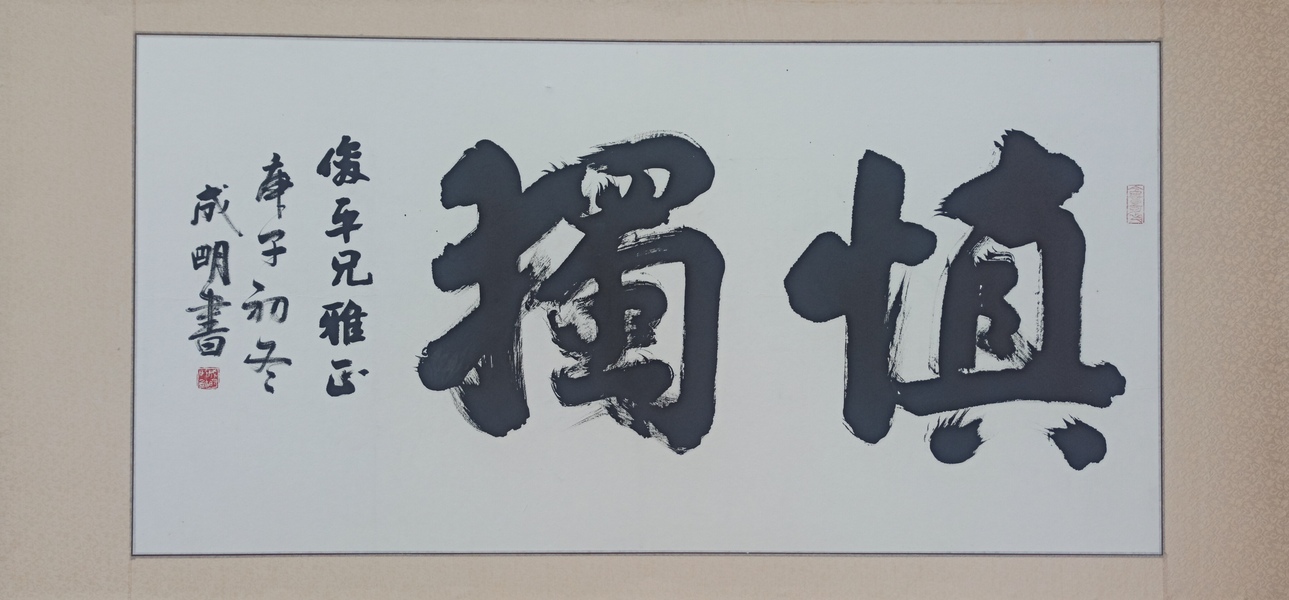 慎獨
俊平兄雅正
庚子初冬
成明書